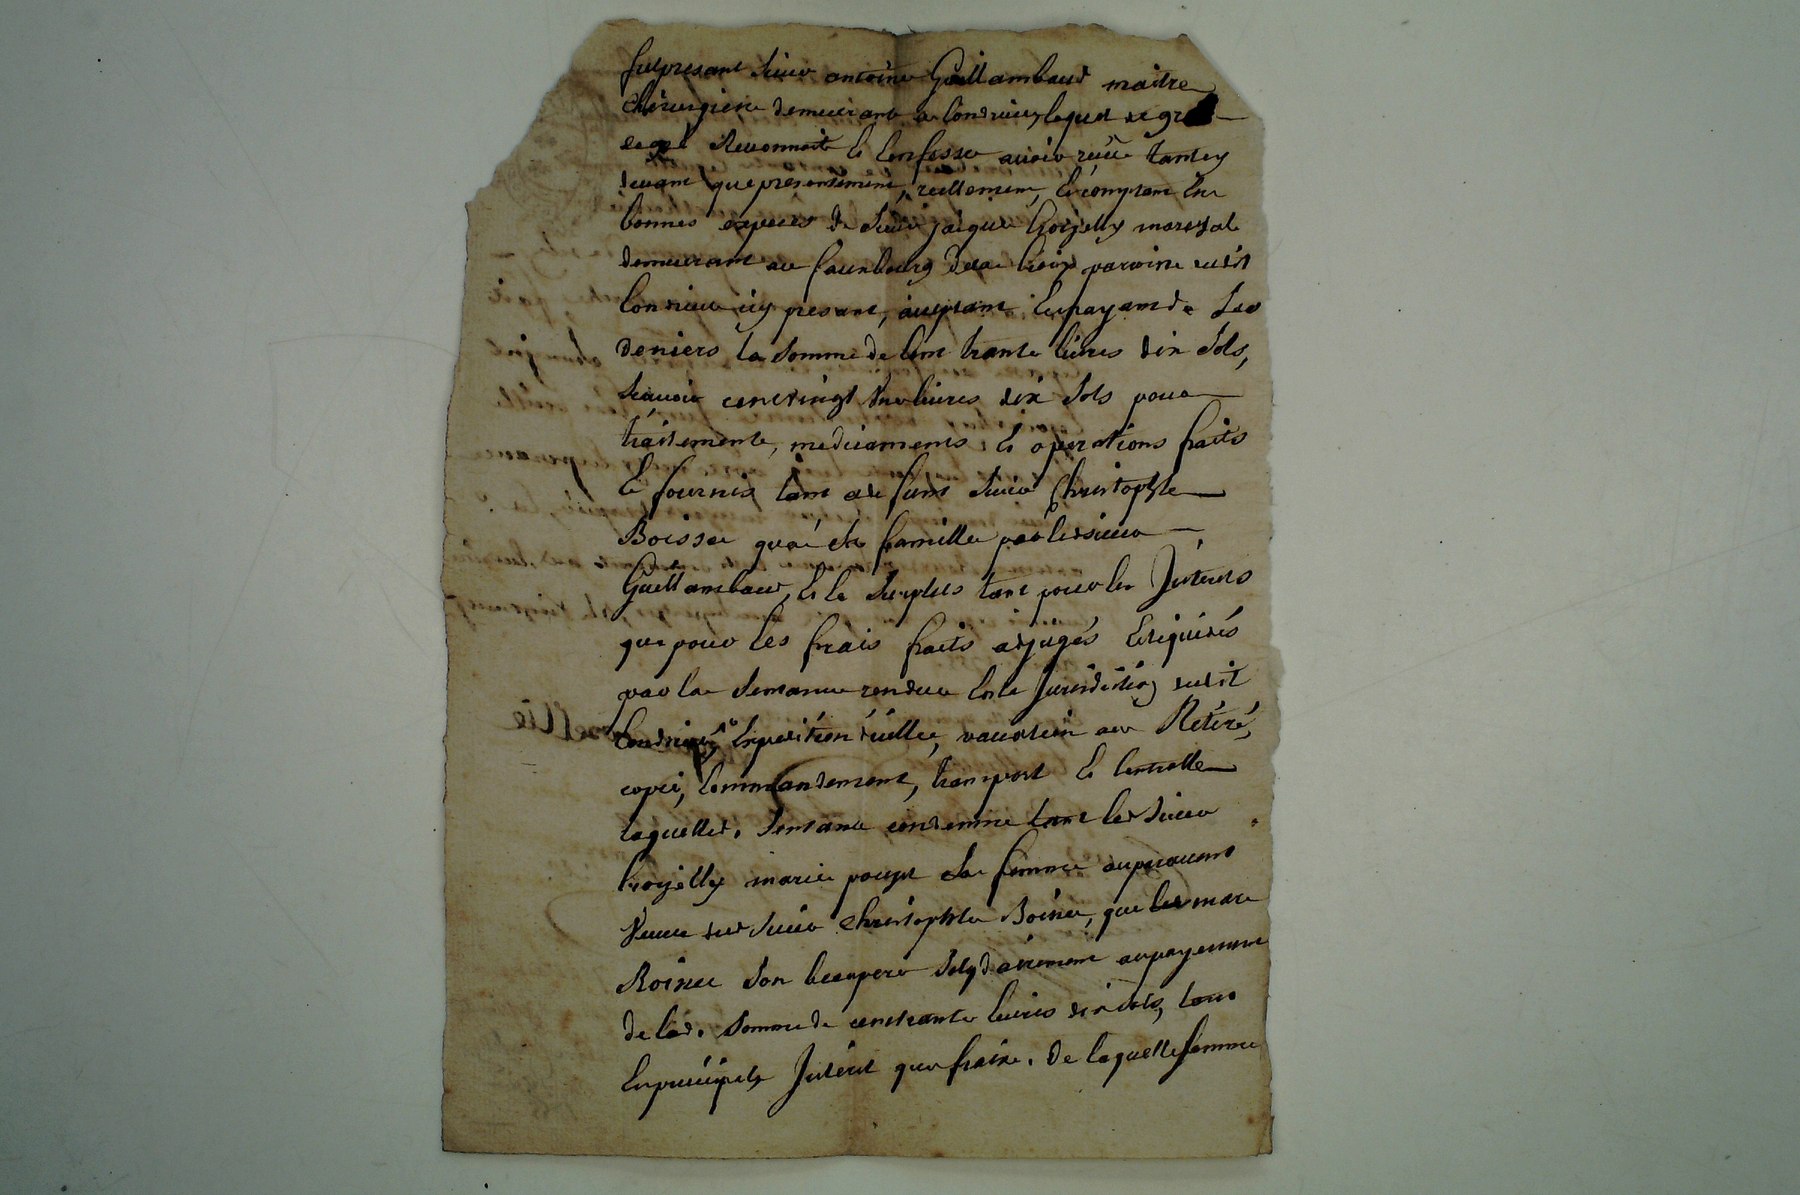 fut present sieur antoine Guillambaud maitre
chirurgien demeurant a Condrieu, lequel de gré
reconnoit & Confesse avoir reçu tant cy
devant que presentement, reellement, & comptant En
bonnes especes de sieur jacque Croizelly mareschal
demeurant au fauxbourg de la Croix paroisse dudit
Condrieu icy present, aceptant & payant de ses
deniers la somme de Cent trante livres dix sols,
scavoir cent vingt une livres dix sols pour
traitements, medicaments, & operations faits
& fournis tant au sieur Christophle
Boissee qu'a sa famille par led sieur
Guillambaud, & le surplus tant pour les Interets
que pour les frais faits adjugés & liquidés
par la sentance rendue En la Jurisdiction dudit
Condrieu, Expedition d'icelle, vacation au Retiré,
copie, Commandement, transport & Controlle
laquelle d. sentance condemne tant led sieur
Croizelly marie pouzet sa femme auparavant
Veuve dud sieur Christophle Boissee, que marc
Boissee son beaupere solydairement au payement
de lad. somme de cent trante livres dix sols, tant
En principal, Interet que frais. De laquelle somme